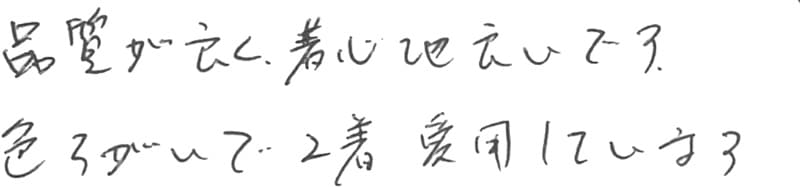 品質が良く、着心地良いです。
色ちがいで2着愛用しています